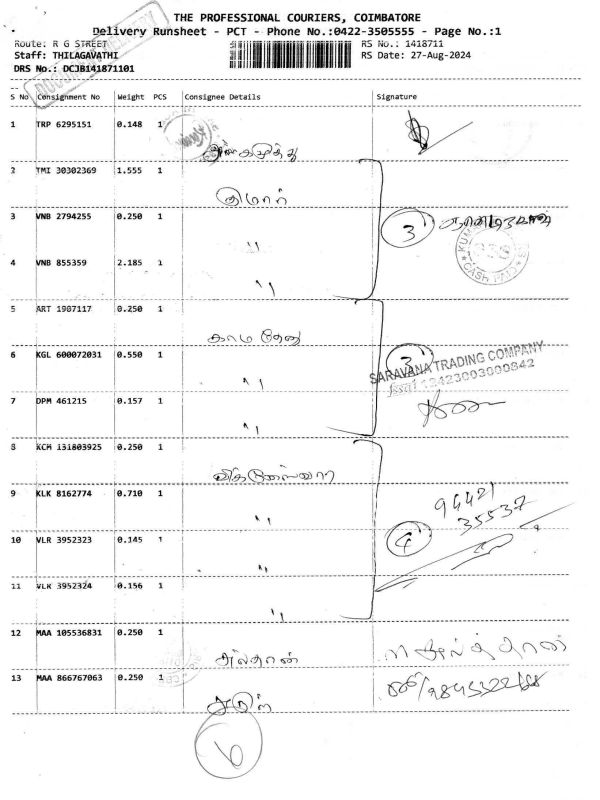 THE PROFESSIONAL COURIERS, COIMBATORE
Delivery Runsheet - PCT - Phone No.:0422-3505555 - Page No.:1
Route: R G STREET
RS No.: 1418711
Staff: THILAGAVATHI
RS Date: 27-Aug-2024
DRS No.: DCJB141871101
S No Consignment No Weight PCS Consignee Details Signature
1 TRP 6295151 0.148 1
2 TMI 30302369 1.555 1
குமார்
3 VNB 2794255 0.250 1
3
"
4 VNB 855359 2.185 1
CASH PAID
"
5 ART 1907117 0.250 1
காமதேனு
3
6 KGL 600072031 0.550 1
SARAVANA TRADING COMPANY
"
7 DPM 461215 0.157 1
"
8 KCM 131803925 0.250 1
9 KLK 8162774 0.710 1
94421
35537
"
10 VLR 3952323 0.145 1
4
"
11 VLR 3952324 0.156 1
"
12 MAA 105536831 0.250 1
13 MAA 866767063 0.250 1
6